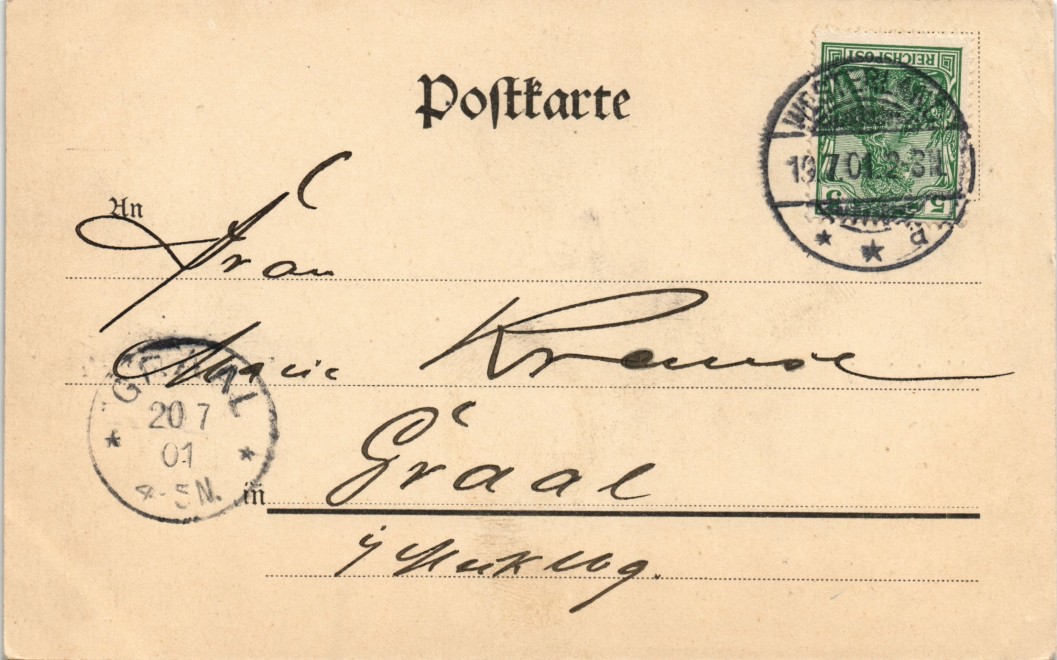 Postkarte
REICHSPOST
5 5
WESTERLAND
19.7.01.2-3N.
* * a
An
Frau
Marie Krause
GRAAL
20 7
01
4-5N.
* *
in Graal
i/Meklbg.